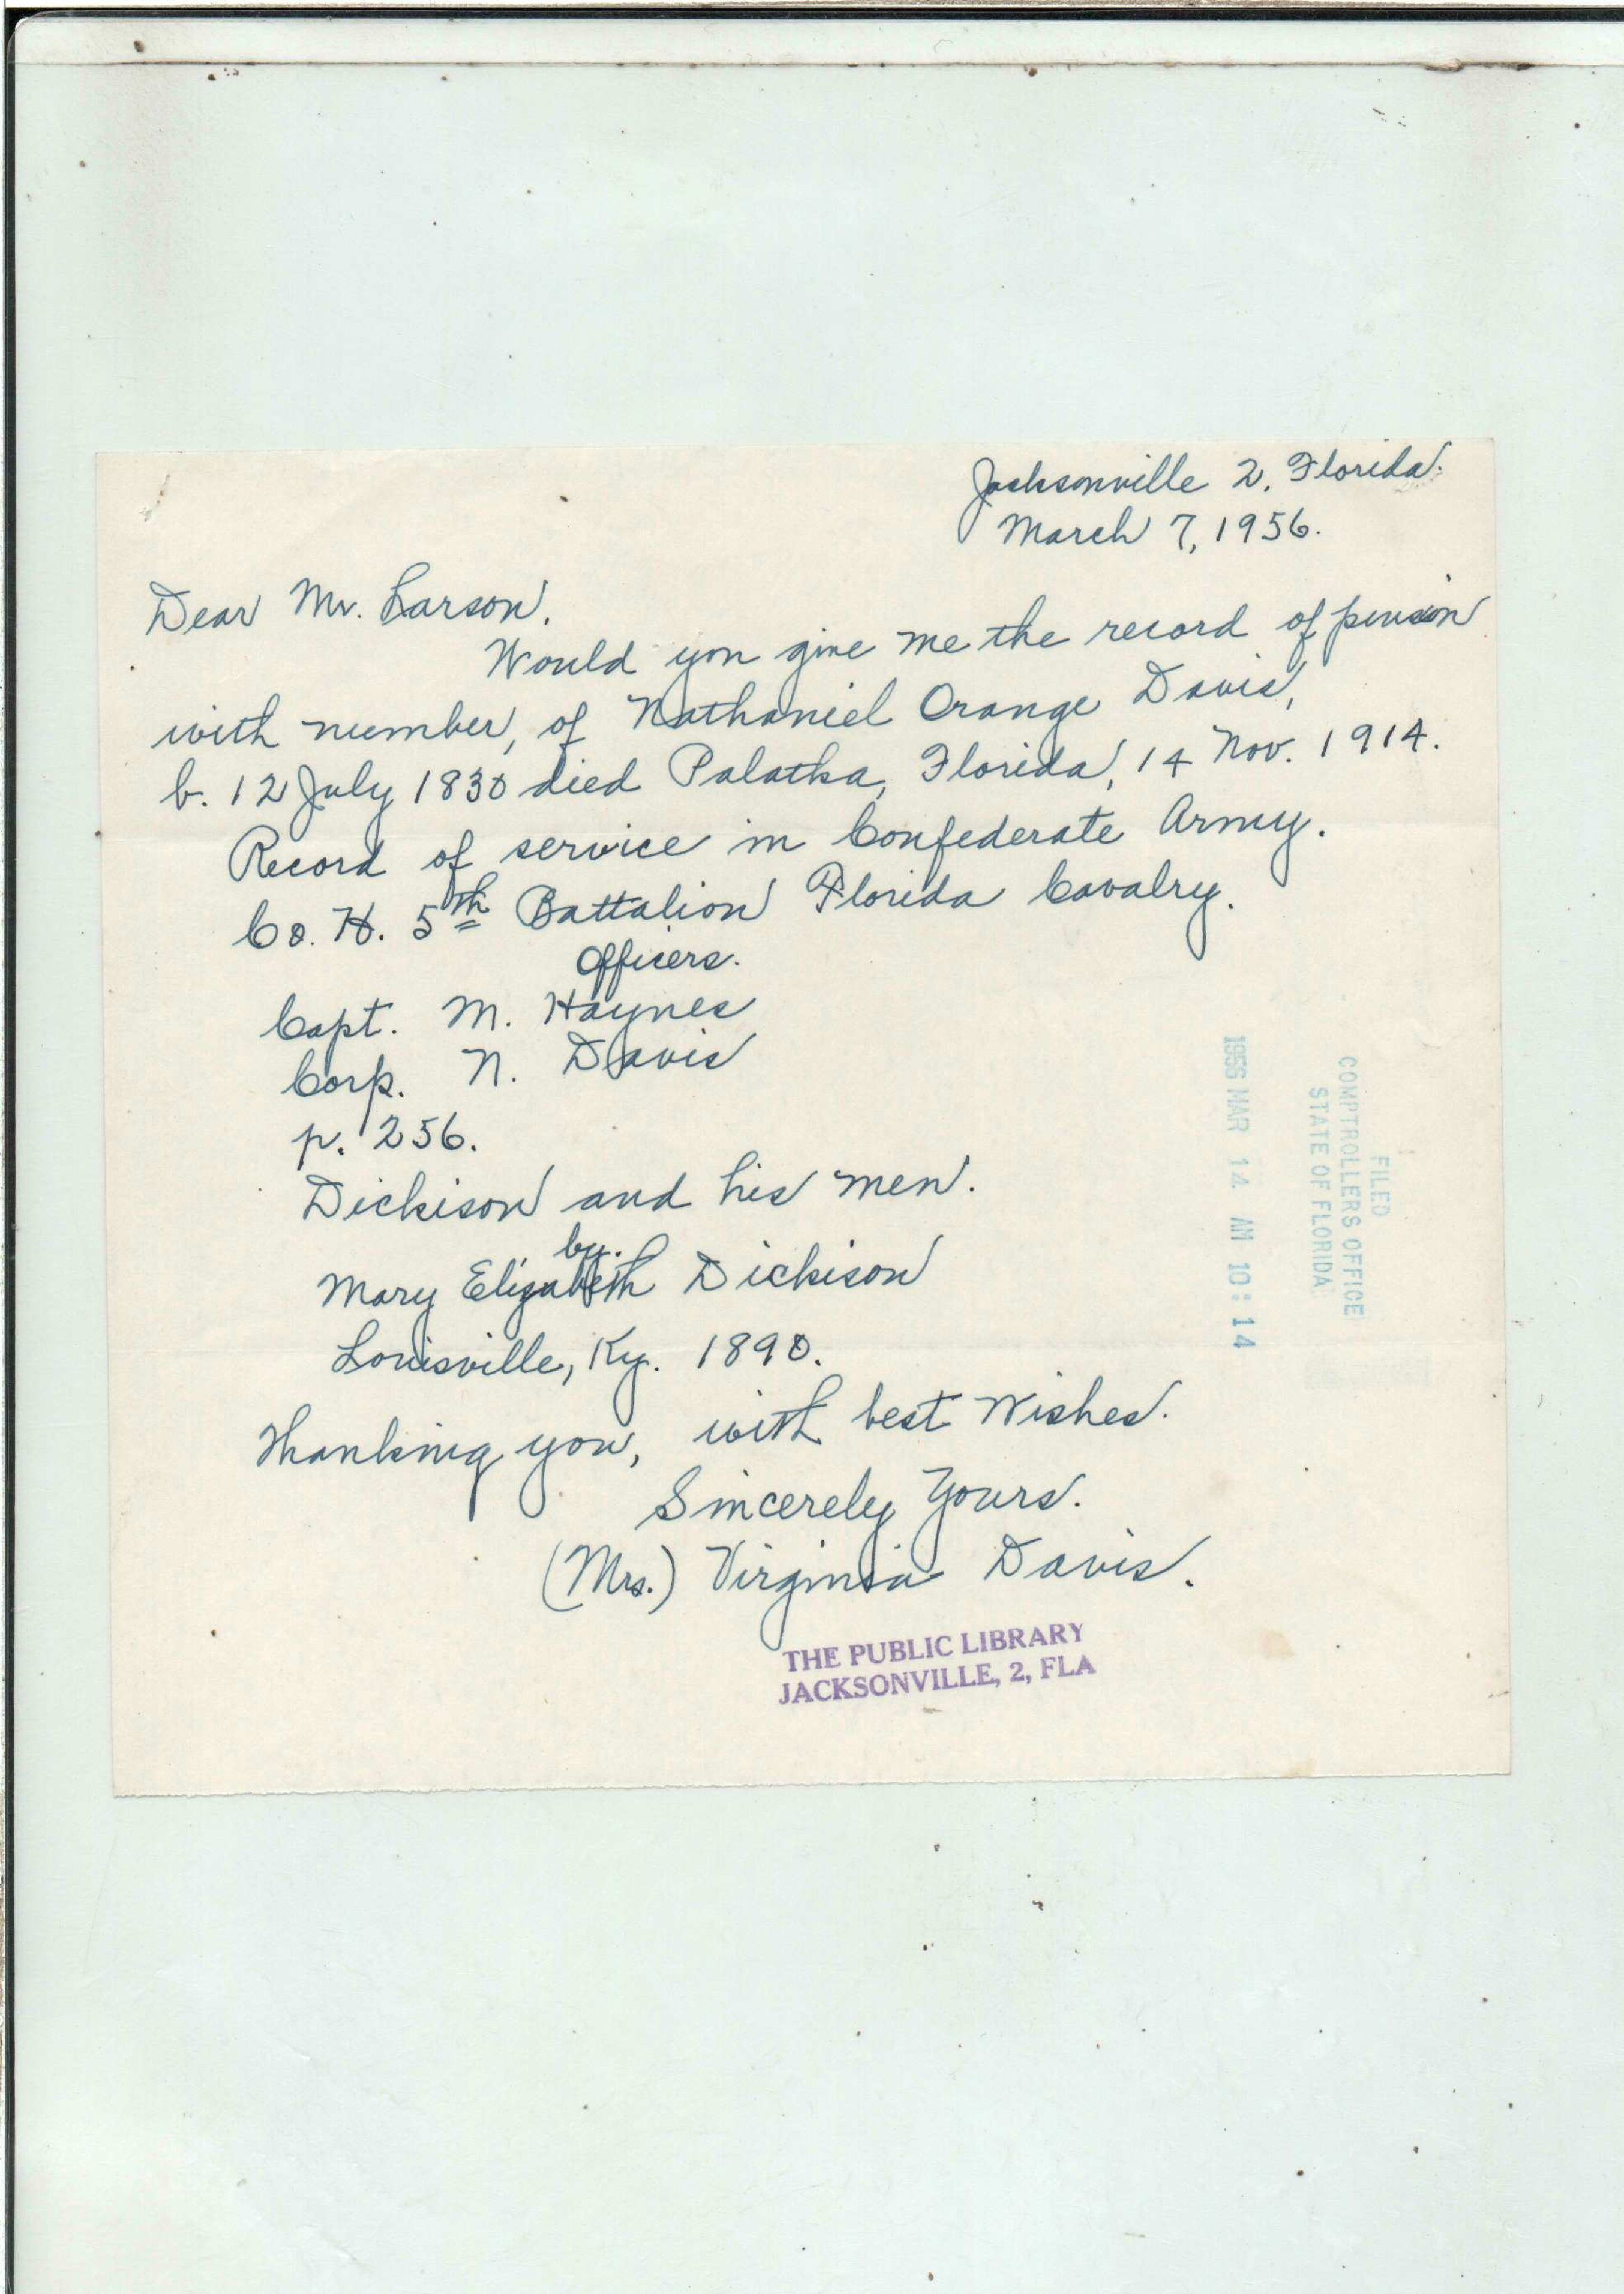 Jacksonville 2, Florida.
March 7, 1956.
Dear Mr. Larson.
Would you give me the record of pension
with number, of Nathaniel Orange Davis,
b. 12 July 1830 died Palatka, Florida, 14 Nov. 1914.
Record of service in Confederate Army.
Co. H. 5th Battalion Florida Cavalry.
Officers.
Capt. M. Haynes
Corp. N. Davis
p. 256.
Dickison and his men.
by.
Mary Elizabeth Dickison
Louisville, Ky. 1890.
Thanking you, with best Wishes.
Sincerely Yours.
(Mrs.) Virginia Davis.
THE PUBLIC LIBRARY
JACKSONVILLE, 2, FLA
FILED
COMPTROLLERS OFFICE
STATE OF FLORIDA
1956 MAR 14 AM 10:14